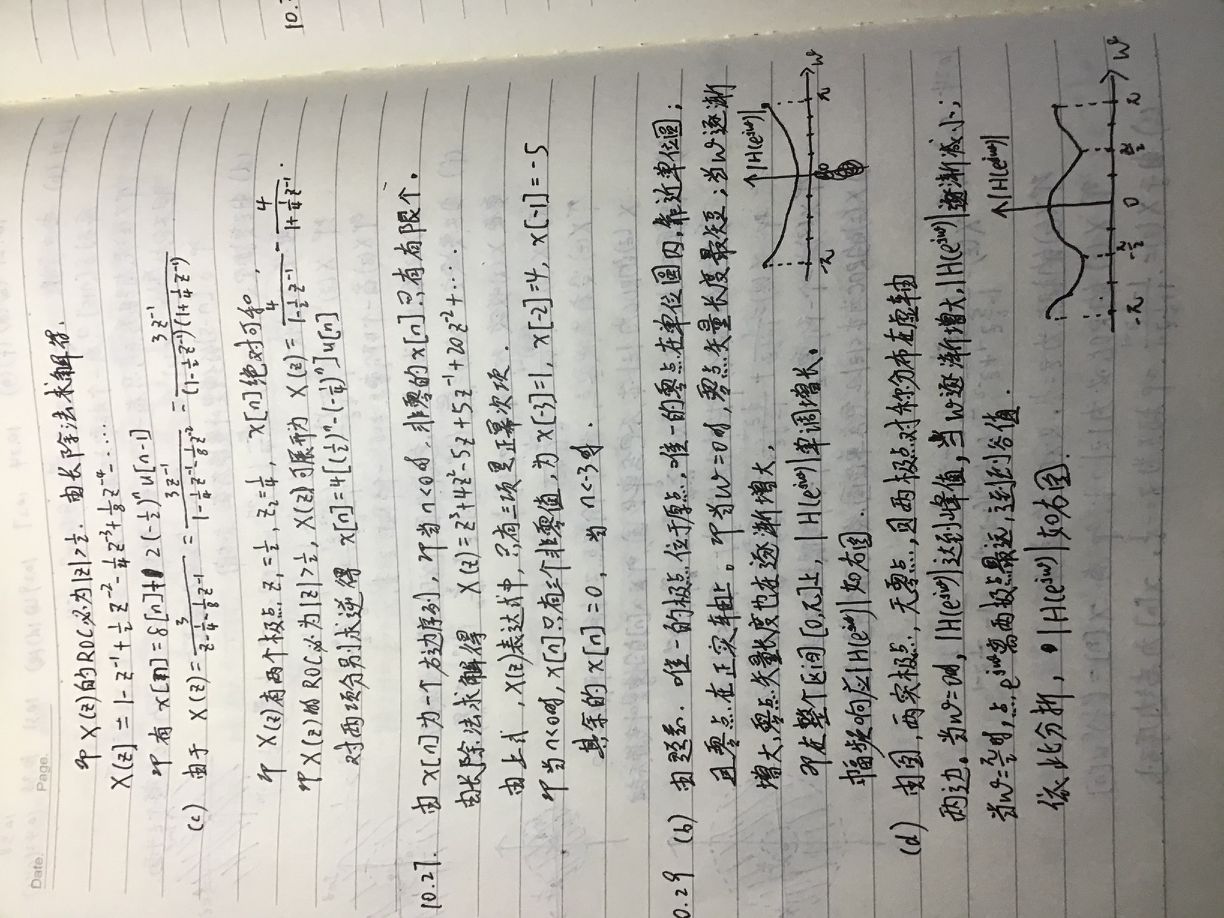 Date. Page.
即 X(z)的ROC必为|z|>½. 由长除法求解得.
X(z) = 1 - z⁻¹ + ½ z⁻² - ¼ z⁻³ + ⅛ z⁻⁴ - ....
即有 x[n] = δ[n] + 2(-½)ⁿ u[n-1]
(c) 由于 X(z) = 3/(z - ¼ - ⅛z⁻¹) = 3z⁻¹/(1 - ¼z⁻¹ - ⅛z⁻²) = 3z⁻¹/((1 - ½z⁻¹)(1 + ¼z⁻¹))
即 X(z)有两个极点 z₁=½, z₂=¼, x[n]绝对可和,
即X(z)的ROC必为|z|>½, X(z)可展开为 X(z) = 4/(1 - ½z⁻¹) - 4/(1 + ¼z⁻¹).
对两项分别求逆得 x[n] = 4[(½)ⁿ - (-¼)ⁿ]u[n]
10.27. 由x[n]为一个右边序列, 即当n<0时, 非零的x[n]只有有限个。
由长除法求解得 X(z) = z³+4z²-5z+5z⁻¹+20z⁻²+….
由上式, X(z)表达式中, 只有三项是正幂次项.
即当n<0时, x[n]只有三个非零值, 为 x[-3]=1, x[-2]=4, x[-1]=-5
其余的x[n]=0, 当n<-3时.
0.29 (b) 由题意. 唯一的极点位于原点, 唯一的零点在单位圆内, 靠近单位圆;
且零点在正实轴上。即当ω=0时, 零点矢量长度最短; 当ω逐渐
增大, 零点矢量长度也在逐渐增大,
即在整个区间[0,π]上, |H(e^{jω})|单调增长。
幅频响应|H(e^{jω})|如右图.
|H(e^{jω})|
-π 0 π ω
(d) 由图, 两实极点, 无零点, 且两极点对称分布在虚轴
两边。当ω=0时, |H(e^{jω})|达到峰值, 当ω逐渐增大, |H(e^{jω})|逐渐减小;
当ω=π/2时, 点e^{jω}离两极点最远, 达到谷值.
依此分析, |H(e^{jω})|如右图
|H(e^{jω})|
-π -π/2 0 π/2 π ω
10.